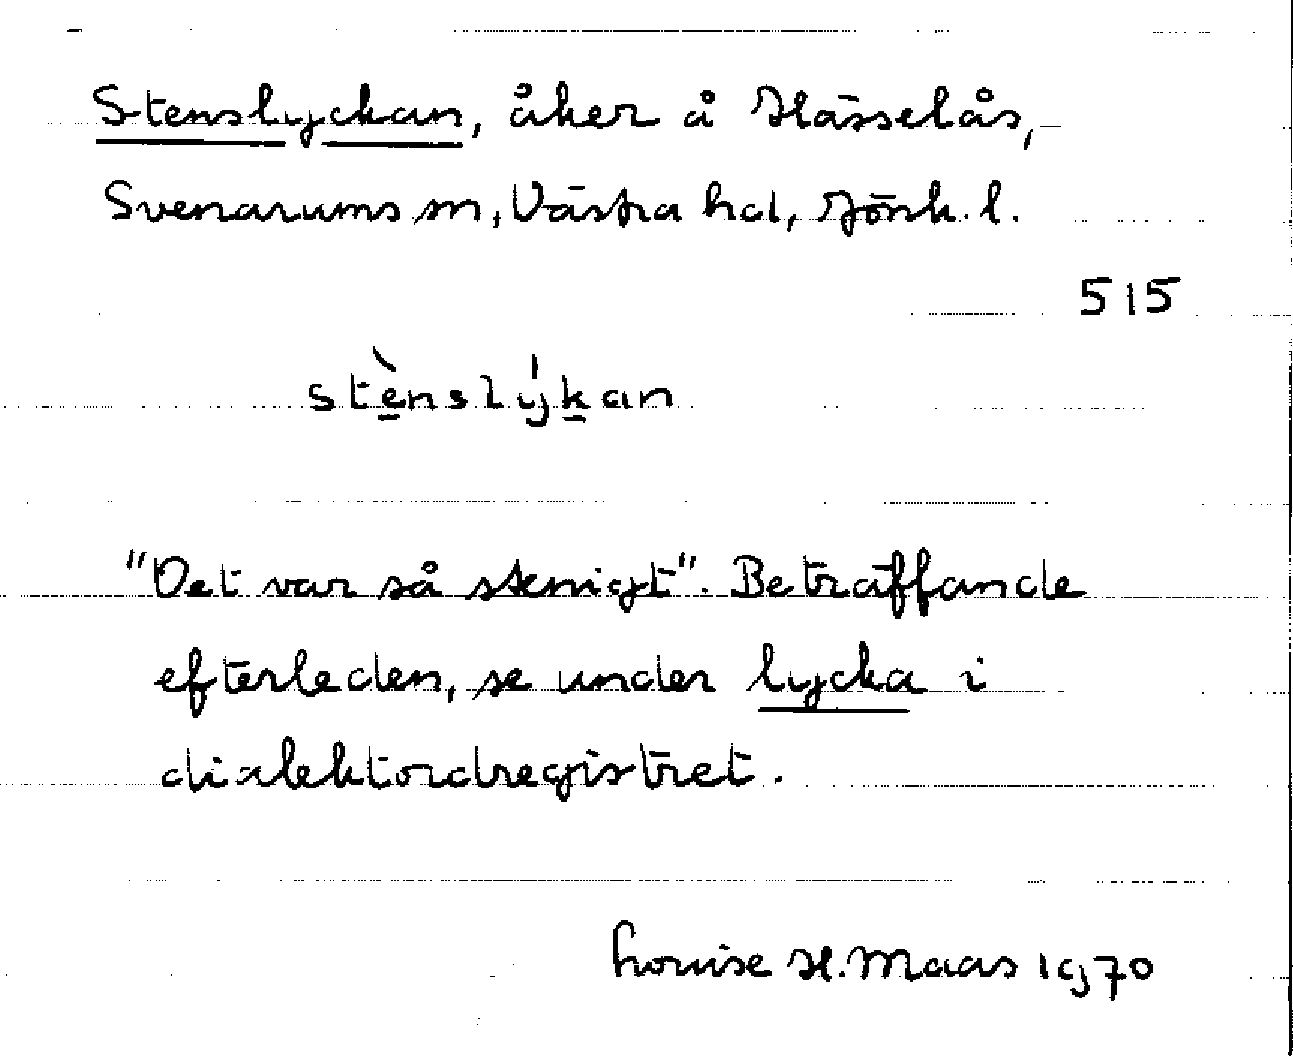 Stenslyckan, åker å Hässelås,
Svenarums sn, Västra hd, Jönk. l.
515
stè̠nslýk̠an
"Det var så stenigt". Beträffande
efterleden, se under lycka i
dialektordregistret.
Louise H. Maas 1970